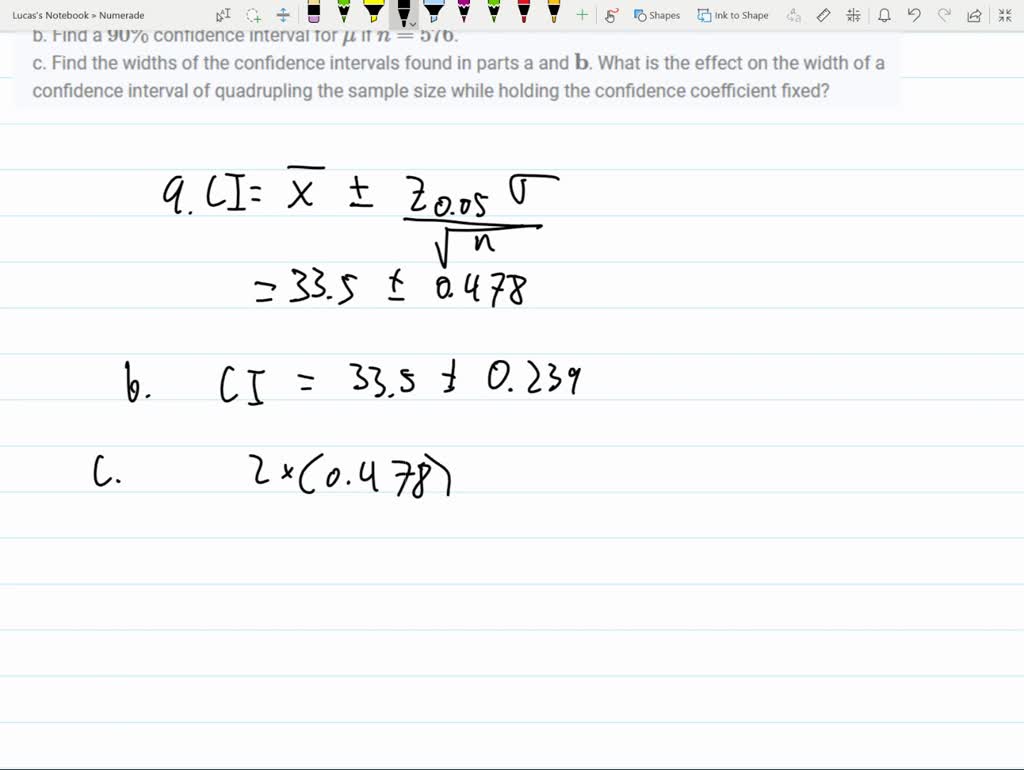 Lucas's Notebook > Numerade
Shapes
Ink to Shape
b. Find a 90% confidence interval for μ if n = 576.
c. Find the widths of the confidence intervals found in parts a and b. What is the effect on the width of a
confidence interval of quadrupling the sample size while holding the confidence coefficient fixed?
a. CI = x̄ ± z0.05 σ / √n
= 33.5 ± 0.478
b. CI = 33.5 ± 0.239
c. 2 × (0.478)